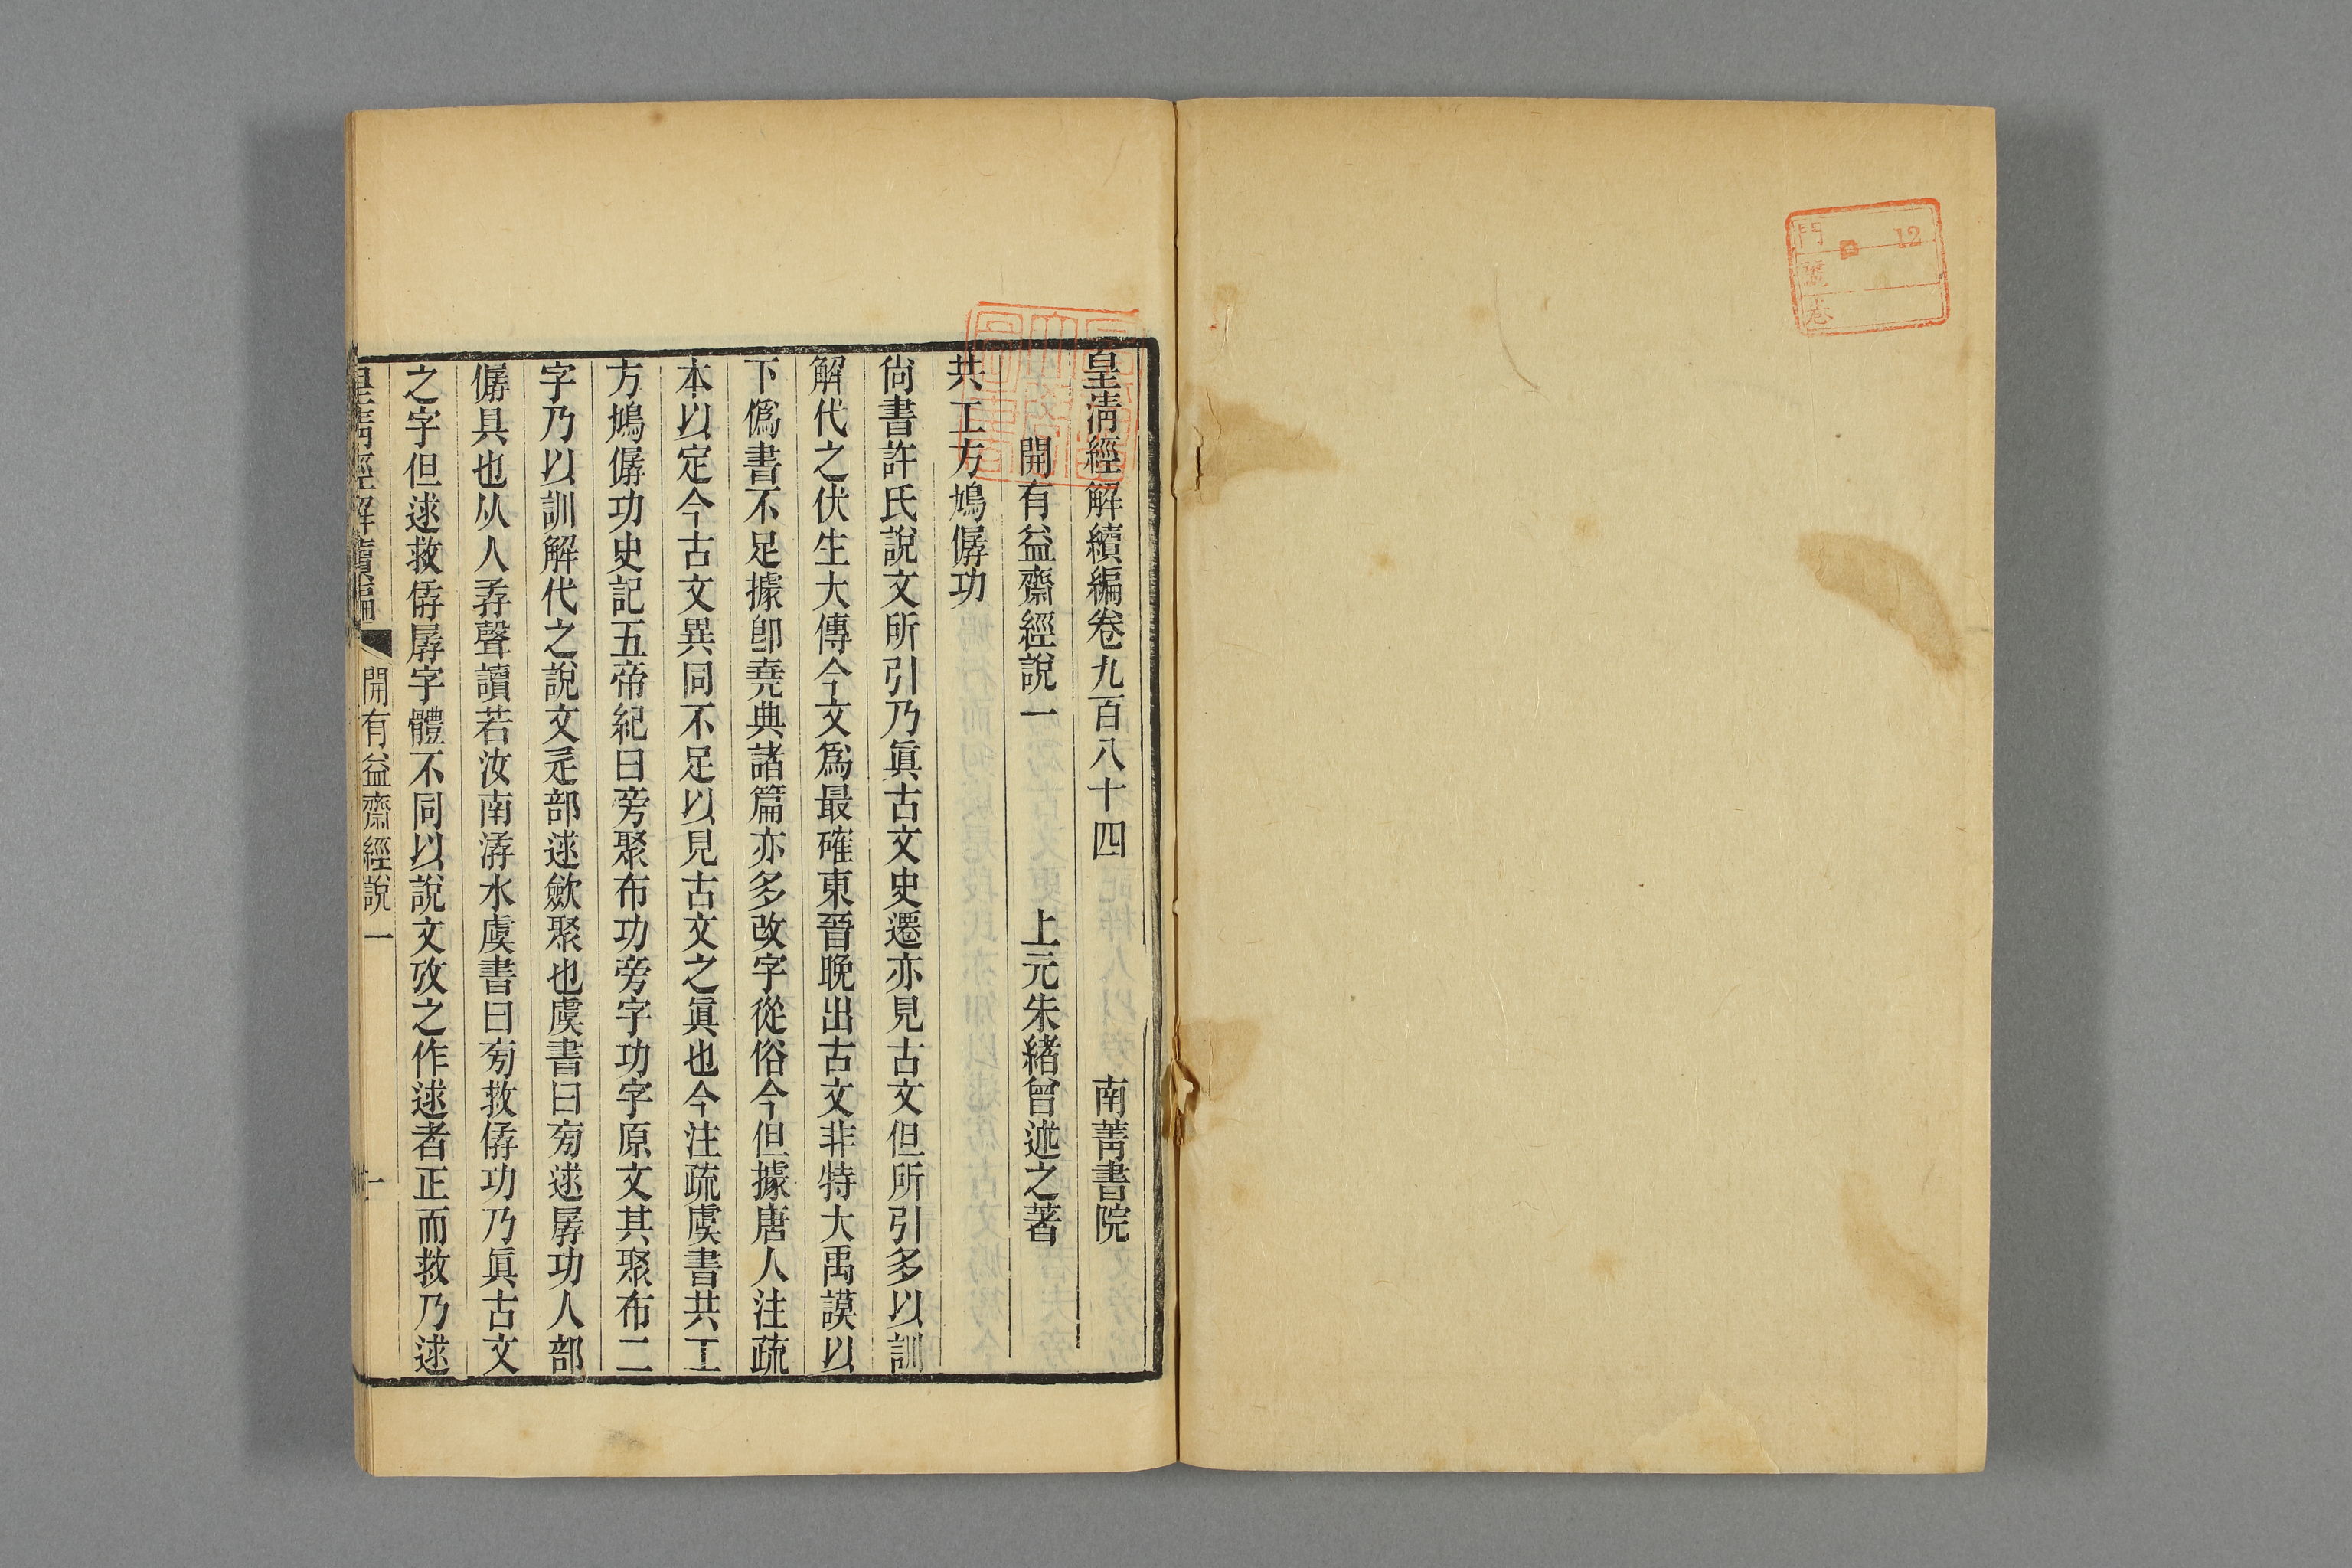 門 12
號
卷
皇清經解續編卷九百八十四 南菁書院
開有益齋經說一 上元朱緒曾述之著
共工方鳩僝功
尙書許氏說文所引乃眞古文史遷亦見古文但所引多以訓
解代之伏生大傳今文爲最確東晉晚出古文非特大禹謨以
下僞書不足據卽堯典諸篇亦多改字從俗今但據唐人注疏
本以定今古文異同不足以見古文之眞也今注疏虞書共工
方鳩僝功史記五帝紀曰旁聚布功旁字功字原文其聚布二
字乃以訓解代之說文辵部逑歛聚也虞書曰㫄逑孱功人部
僝具也从人孨聲讀若汝南潺水虞書曰㫄救僝功乃眞古文
之字但逑救僝孱字體不同以說文攷之作逑者正而救乃逑
皇淸經解續編 開有益齋經說一 一